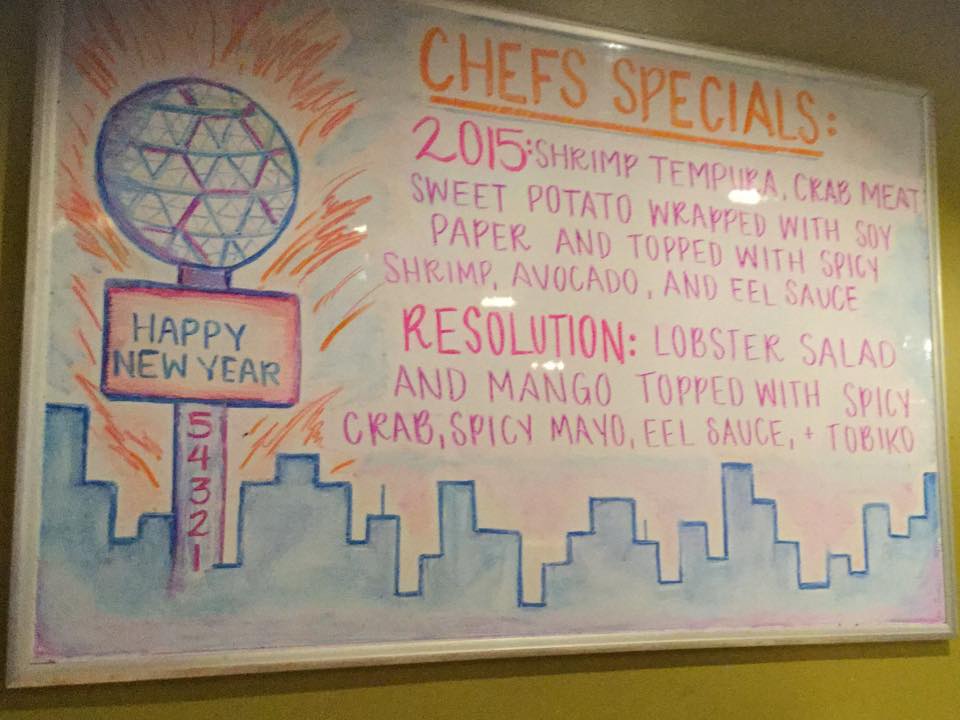 CHEFS SPECIALS:
2015: SHRIMP TEMPURA, CRAB MEAT,
SWEET POTATO WRAPPED WITH SOY
PAPER AND TOPPED WITH SPICY
SHRIMP, AVOCADO, AND EEL SAUCE
RESOLUTION: LOBSTER SALAD
AND MANGO TOPPED WITH SPICY
CRAB, SPICY MAYO, EEL SAUCE, + TOBIKO
HAPPY
NEW YEAR
5
4
3
2
1